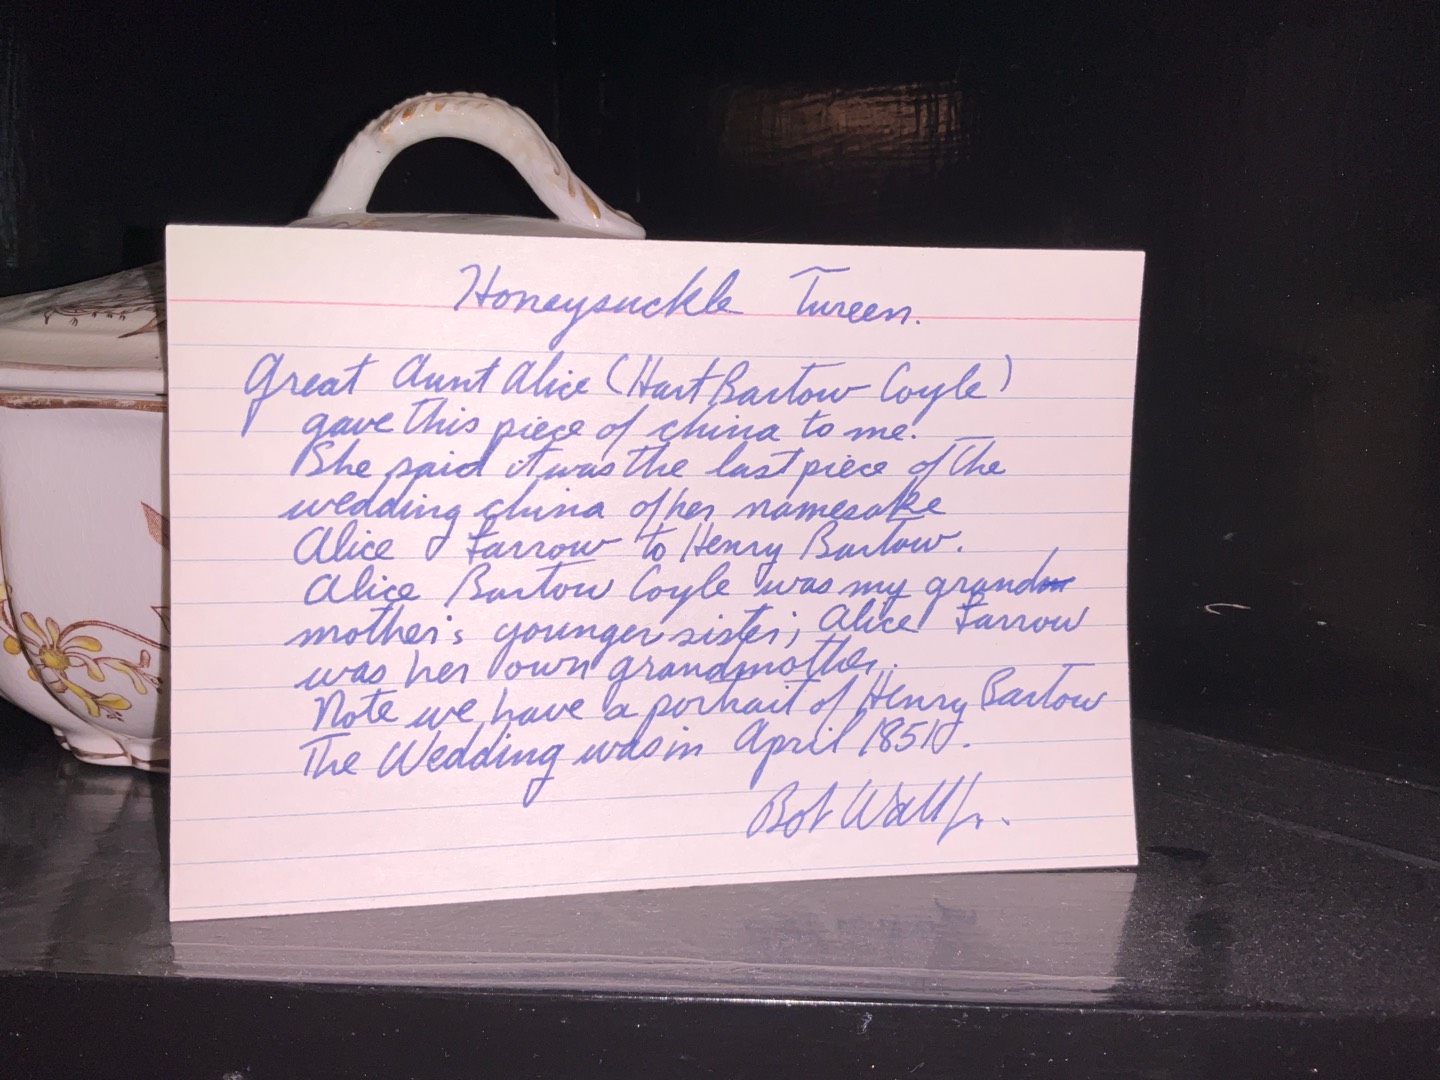 Honeysuckle Tureen.
Great Aunt Alice (Hart Bartow Coyle)
gave this piece of china to me.
She said it was the last piece of the
wedding china of her namesake
Alice Farrow to Henry Bartow.
Alice Bartow Coyle was my grand
mother's younger sister; Alice Farrow
was her own grandmother.
Note we have a portrait of Henry Bartow
The Wedding was in April
Bob Wall Jr.